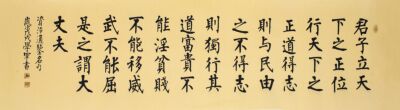 君子立天
下之正位
行天下之
正道得志
則與民由
之不得志
則獨行其
道富貴不
能淫貧賤
不能移威
武不能屈
是之謂大
丈夫